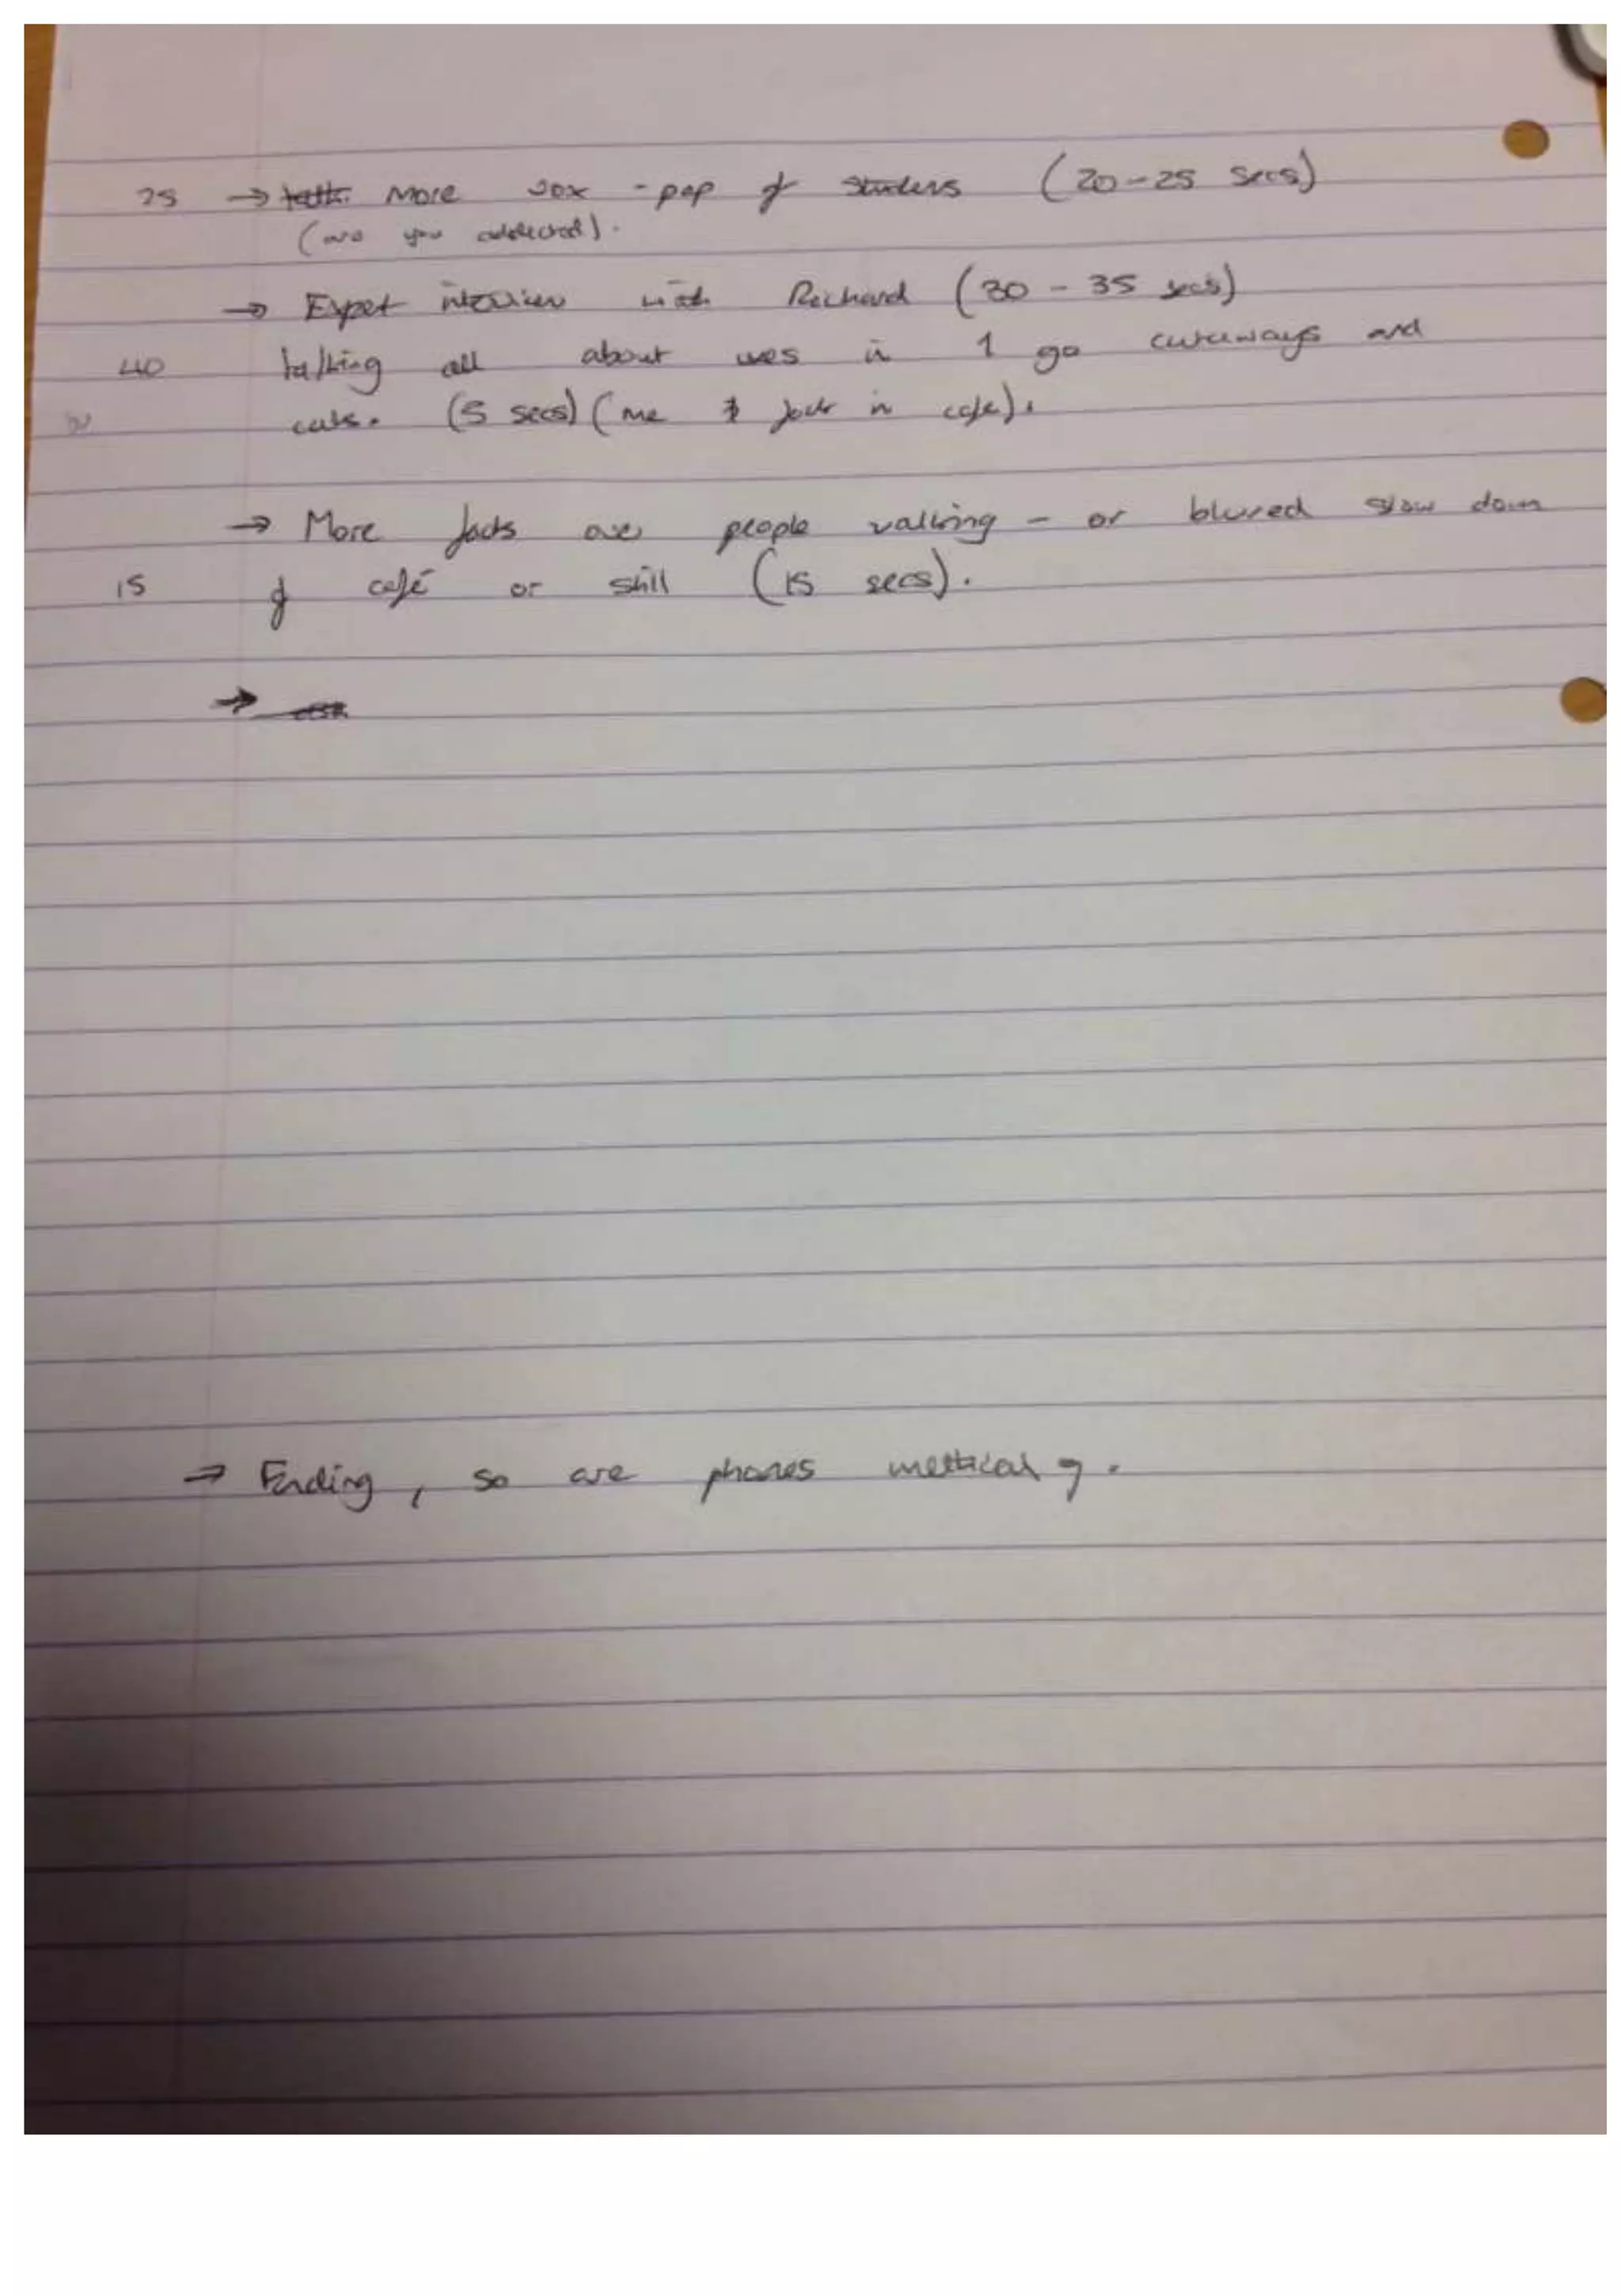 25 → More vox-pop of students (20-25 secs)
(are you addicted).
→ Expet interview with Richard (30 - 35 secs)
40 talking all about uses in 1 go cutaways and
cuts. (5 secs) (me & Jack in cafe).
→ More facts over people walking - or blured slow down
15 of café or still (15 secs).
→
→ Ending, so are phones